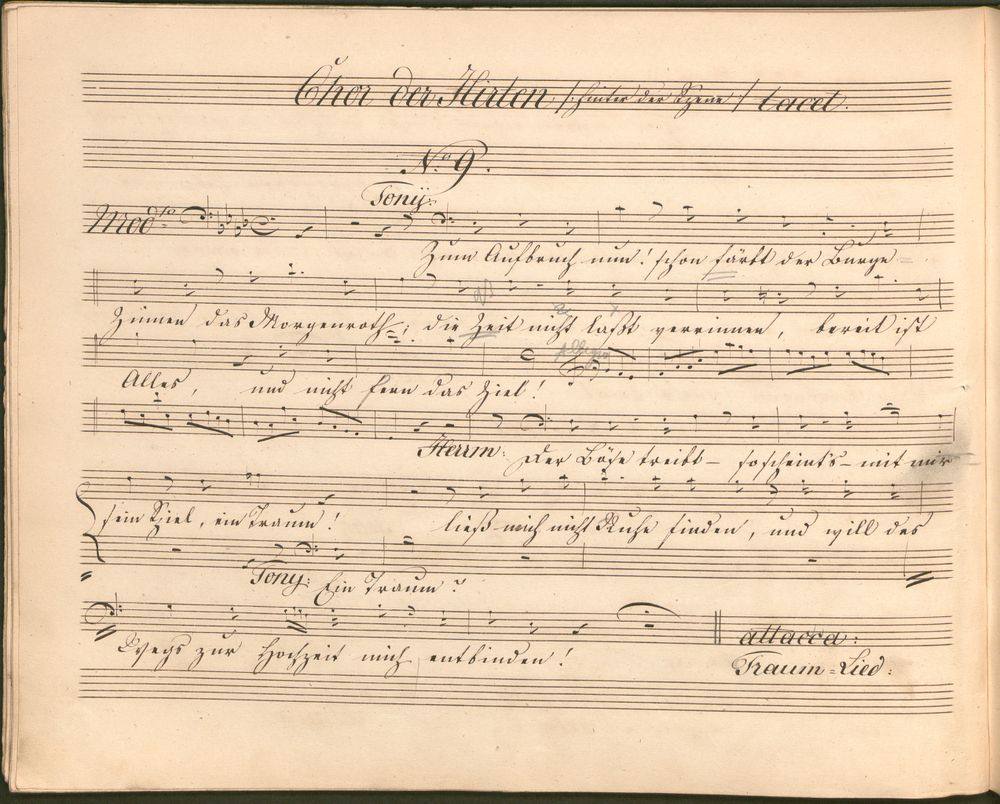 Chor der Hirten /: hinter der Szene :/ tacet.
No 9.
Tony:
Modto
Zum Aufbruch nun! schon färbt der Burge
Zinnen das Morgenroth; die Zeit nicht laßt verrinnen, bereit ist
Allegro
Alles, und nicht fern das Ziel!
Herrm: Der Böse treibt – so scheint's – mit mir
sein Spiel, ein Traum! ließ mich nicht Ruhe finden, und will des
Tony: Ein Traum?
Wegs zur Hochzeit mich entbinden!
attacca:
Traum=Lied: